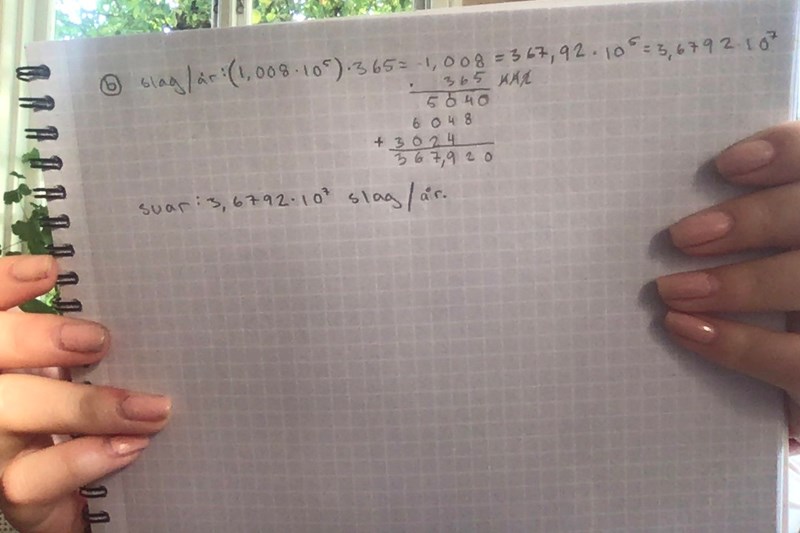 b) slag/år:(1,008·10⁵)·365= 1,008 = 367,92·10⁵ = 3,6792·10⁷
· 365
5040
6048
+ 3024
367,920
svar: 3,6792·10⁷ slag/år.